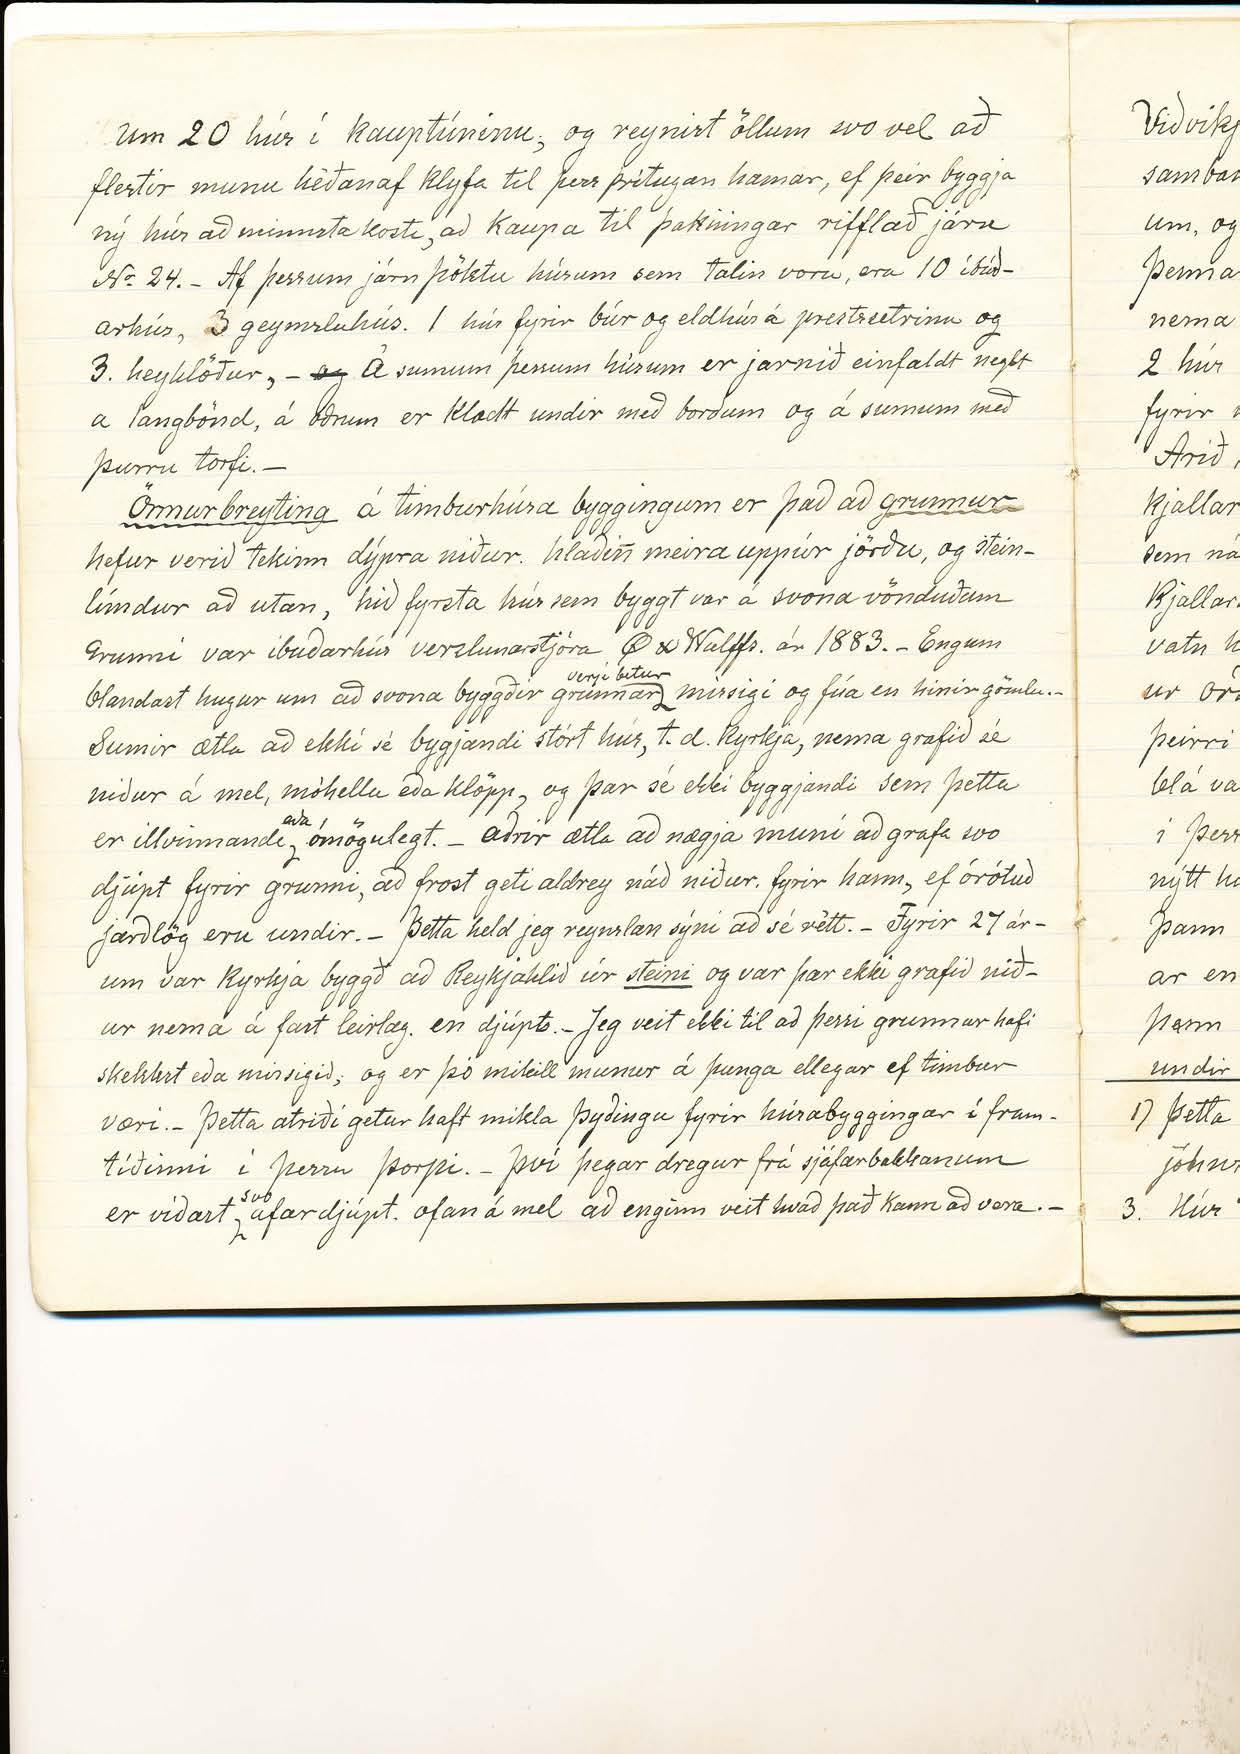 um 20 hús í kauptúninu, og reynist öllum svo vel að
flestir munu héðanaf klyfa til þess þrítugan hamar, ef þeir byggja
ný hús að minnsta koste, að kaupa til þakningar rifflað járn
No 24. – Af þessum járn þöktu húsum sem talin voru, era 10 íbúð-
arhús, 3 geymsluhús. 1 hús fyrir búr og eldhús á prestssetrinu og
3. heyhlöður, – og Á sumum þessum húsum er jarnið einfaldt neglt
a langbönd, á öðrum er klædt undir með borðum og á sumum með
þurru torfi. –
Önnur breyting á timburhúsa byggingum er það að grunnur
hefur verið tekinn dýpra niður. hlaðin meira uppúr jörðu, og stein-
límdur að utan, hið fyrsta hús sem byggt var á svona vönduðum
Grunni var íbuðarhús verzlunarstjóra Ø & Wulffs. ár 1883. – Engum
blandast hugur um að svona byggðir grunnar verji betur missigi og fúa en hinir gömlu. –
Sumir ætla að ekki sé bygjandi stórt hús, t. d. kyrkja, nema grafið sé
niður á mel, móhellu eða klöpp, og þar sé ekki byggjandi sem þetta
er illvinnande eða ómögulegt. – aðrir ætla að nægja muni að grafa svo
djúpt fyrir grunni, að frost geti aldrey náð niður. fyrir hann, ef órótuð
jarðlög eru undir. – Þetta held jeg reynslan sýni að sé rétt. – Fyrir 27 ár-
um var kyrkja byggð að Reykjahlíð úr steini og var þar ekki grafið nið-
ur nema á fast leirlag. en djúpt. – Jeg veit ekki til að þessi grunnur hafi
skekkst eða missigið, og er þó mikill munur á þunga ellegar ef timbur
væri. – Þetta atriði getur haft mikla þyðingu fyrir húsabyggingar í fram-
tíðinni í þessu þorpi. – Því þegar dregur frá sjáfarbakkanum
er víðast svo afardjúpt. ofan á mel að enginn veit hvað það kann að vera. –
Viðvíkj
samban
um, og
þenna
nema
2 hús
fyrir
Arið
kjallar
sem ná
Kjallar
vatn h
ur
þeirri
blá va
í þess
nýtt h
þann
ar en
þann
undir
1) Þetta
3. Hús